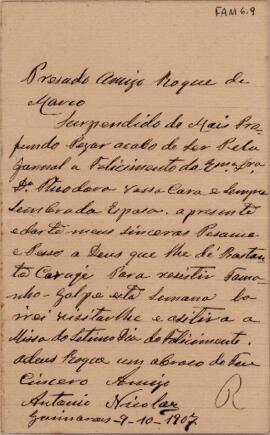 FAM 6.9
Presado Amigo Roque de
Marco
Surpendido do Mais Pro-
fundo Pezar acabo de ler Pelo
Jornal o Falicimento da Exma Sra
D. Theodora Vossa Cara e Sempre
Lembrada Esposa. apresento
e darte meus sinceros Pezames
e Pesso a Deus que lhe dê Bastan
te Coragi Para rezistir Tama-
nho Golpe esta Semana la
irei vizitarlhe e asitirei a
Missa do Setimo Dia do Falicimento.
adeus Roque um abraso do teu
Cincero Amigo
Antonio Nicolas
Guimarães-9-10-1907
R